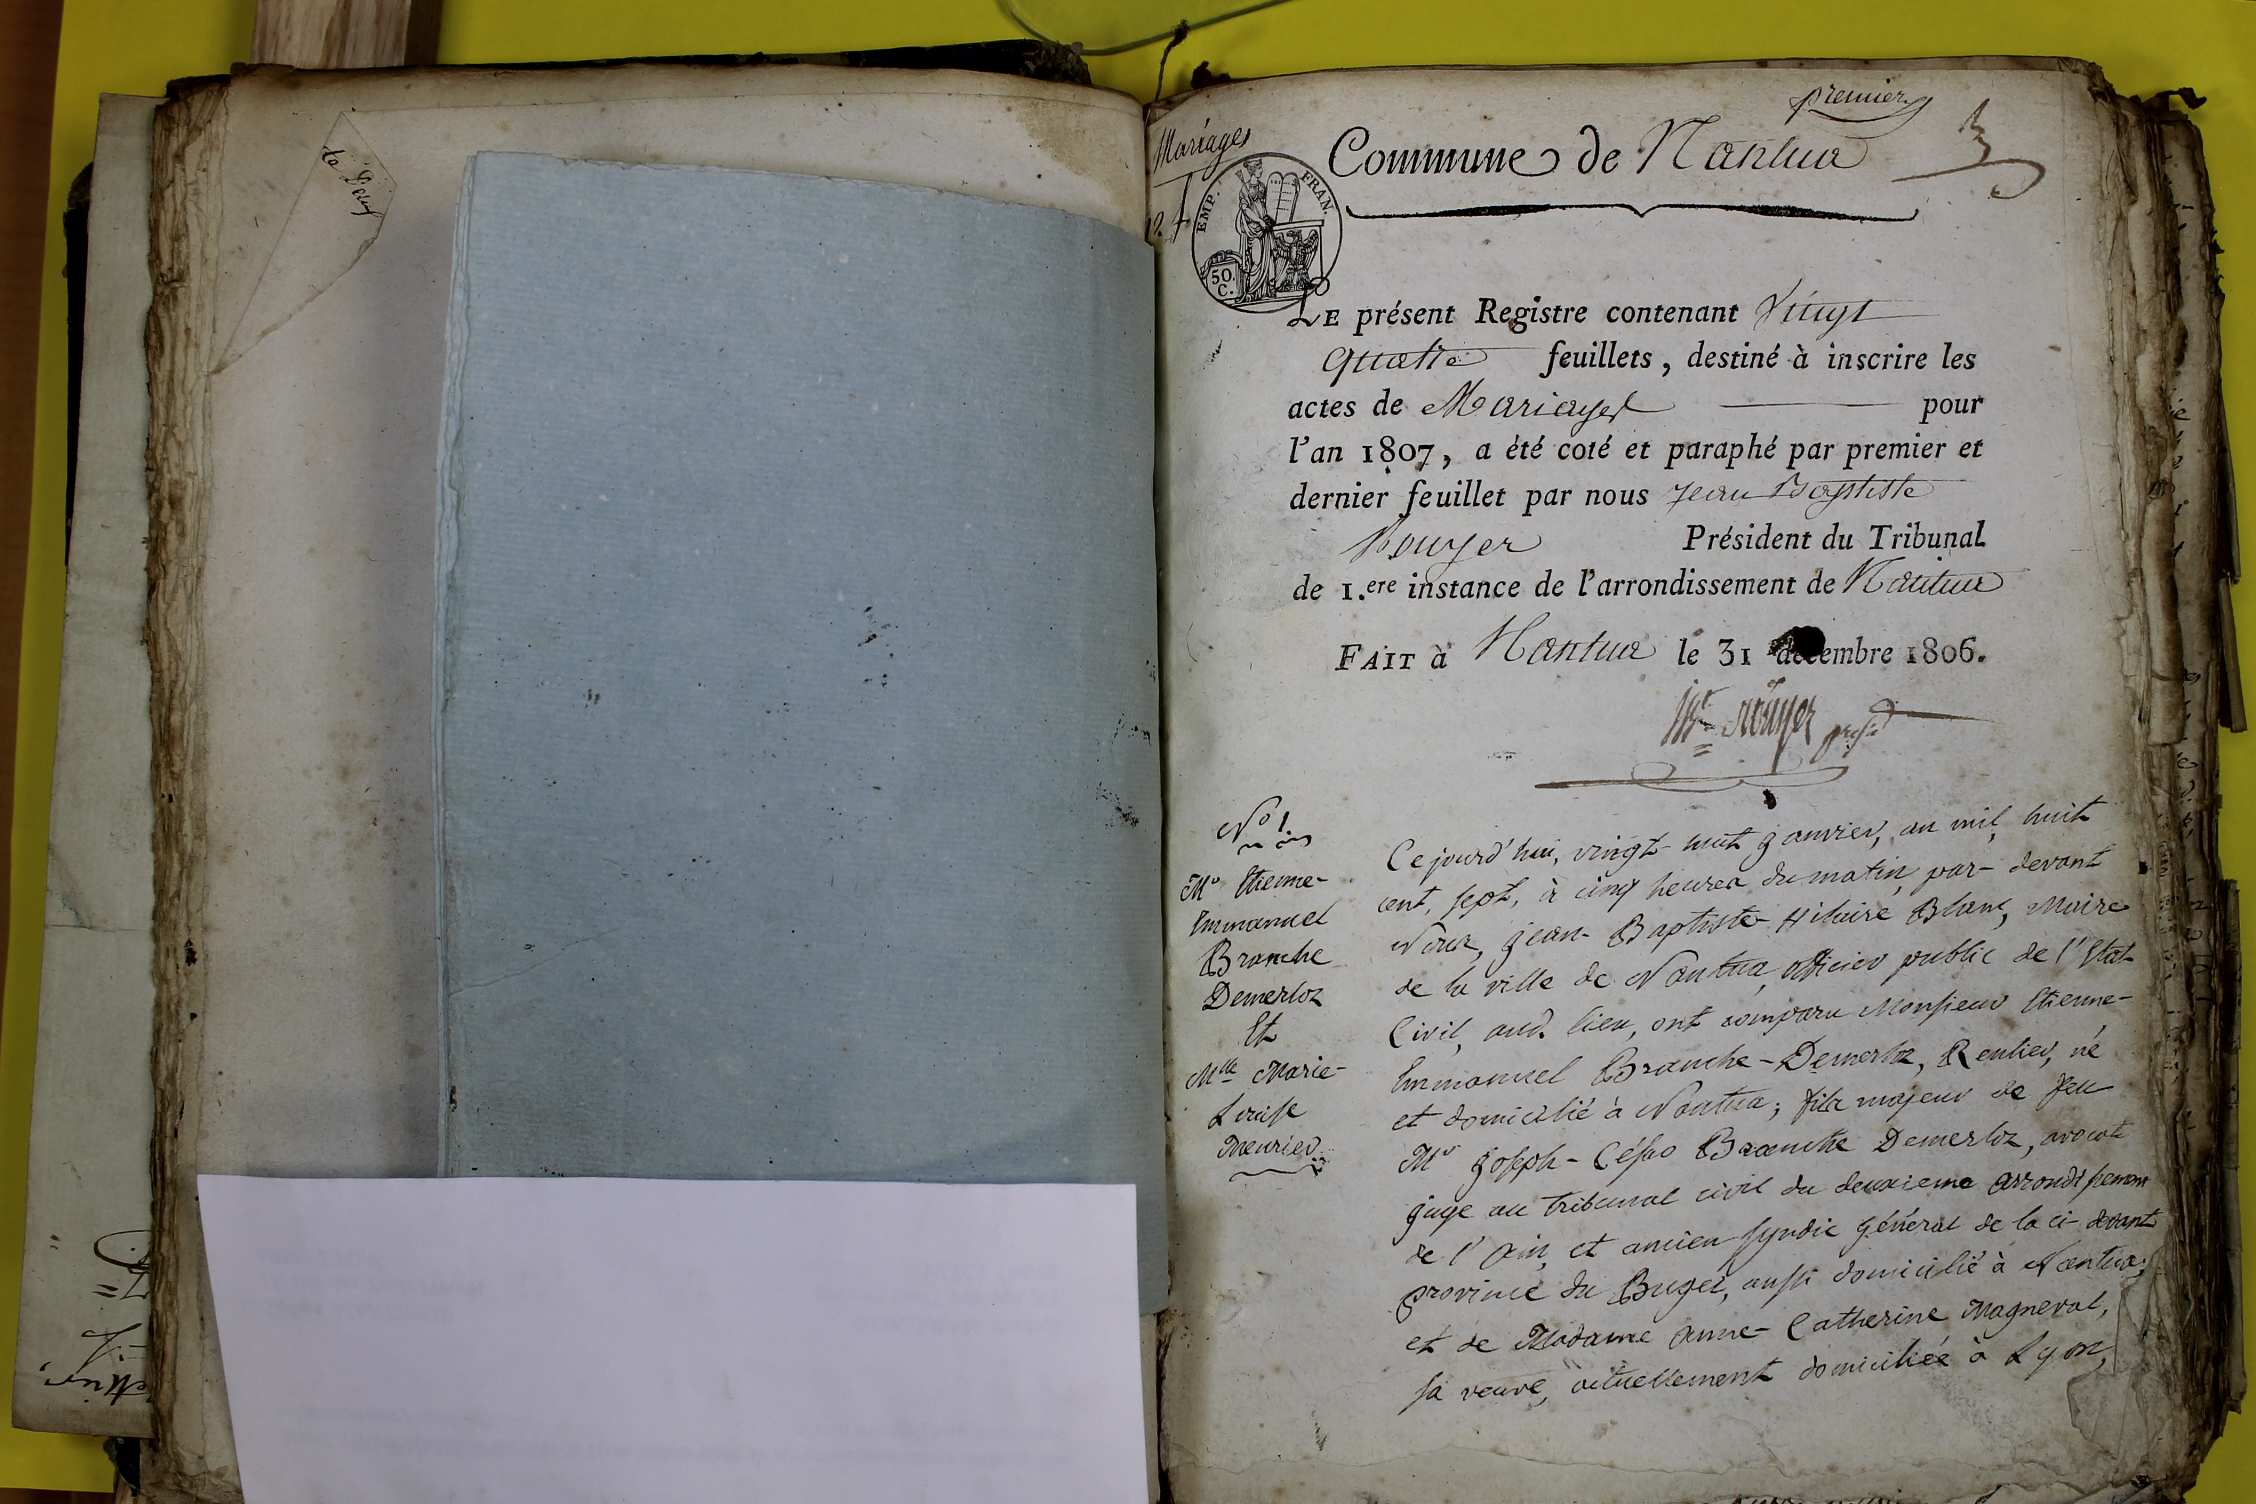 premier
Mariages
Commune de Nantua
EMP. FRAN.
50.
C.
LE présent Registre contenant Vingt
quatre feuillets, destiné à inscrire les
actes de Mariages pour
l'an 1807, a été coté et paraphé par premier et
dernier feuillet par nous Jean Baptiste
Rouyer Président du Tribunal
de 1.ere instance de l'arrondissement de Nantua
FAIT à Nantua le 31 décembre 1806.
Rouyer
No 1.
Mr Etienne-
Emmanuel
Branche
Demerloz
Et
Mlle Marie-
Louise
Meunier
Ce jourd'hui, vingt-huit janvier, an mil, huit
cent, sept, à cinq heures du matin, par-devant
Nous, Jean-Baptiste-Hilaire Blanc, Maire
de la ville de Nantua, officier public de l'Etat
Civil, aud. lieu, ont comparu Monsieur Etienne-
Emmanuel Branche-Demerloz, Rentier, né
et domicilié à Nantua; fils majeur de feu
Mr Joseph-César Branche Demerloz, avocat
juge au tribunal civil du deuxieme arrondissement
de l'Ain, et ancien syndic général de la ci-devant
province du Bugei, aussi domicilié à Nantua;
et de Madame Anne-Catherine Magneval,
sa veuve, actuellement domiciliée à Lyon,